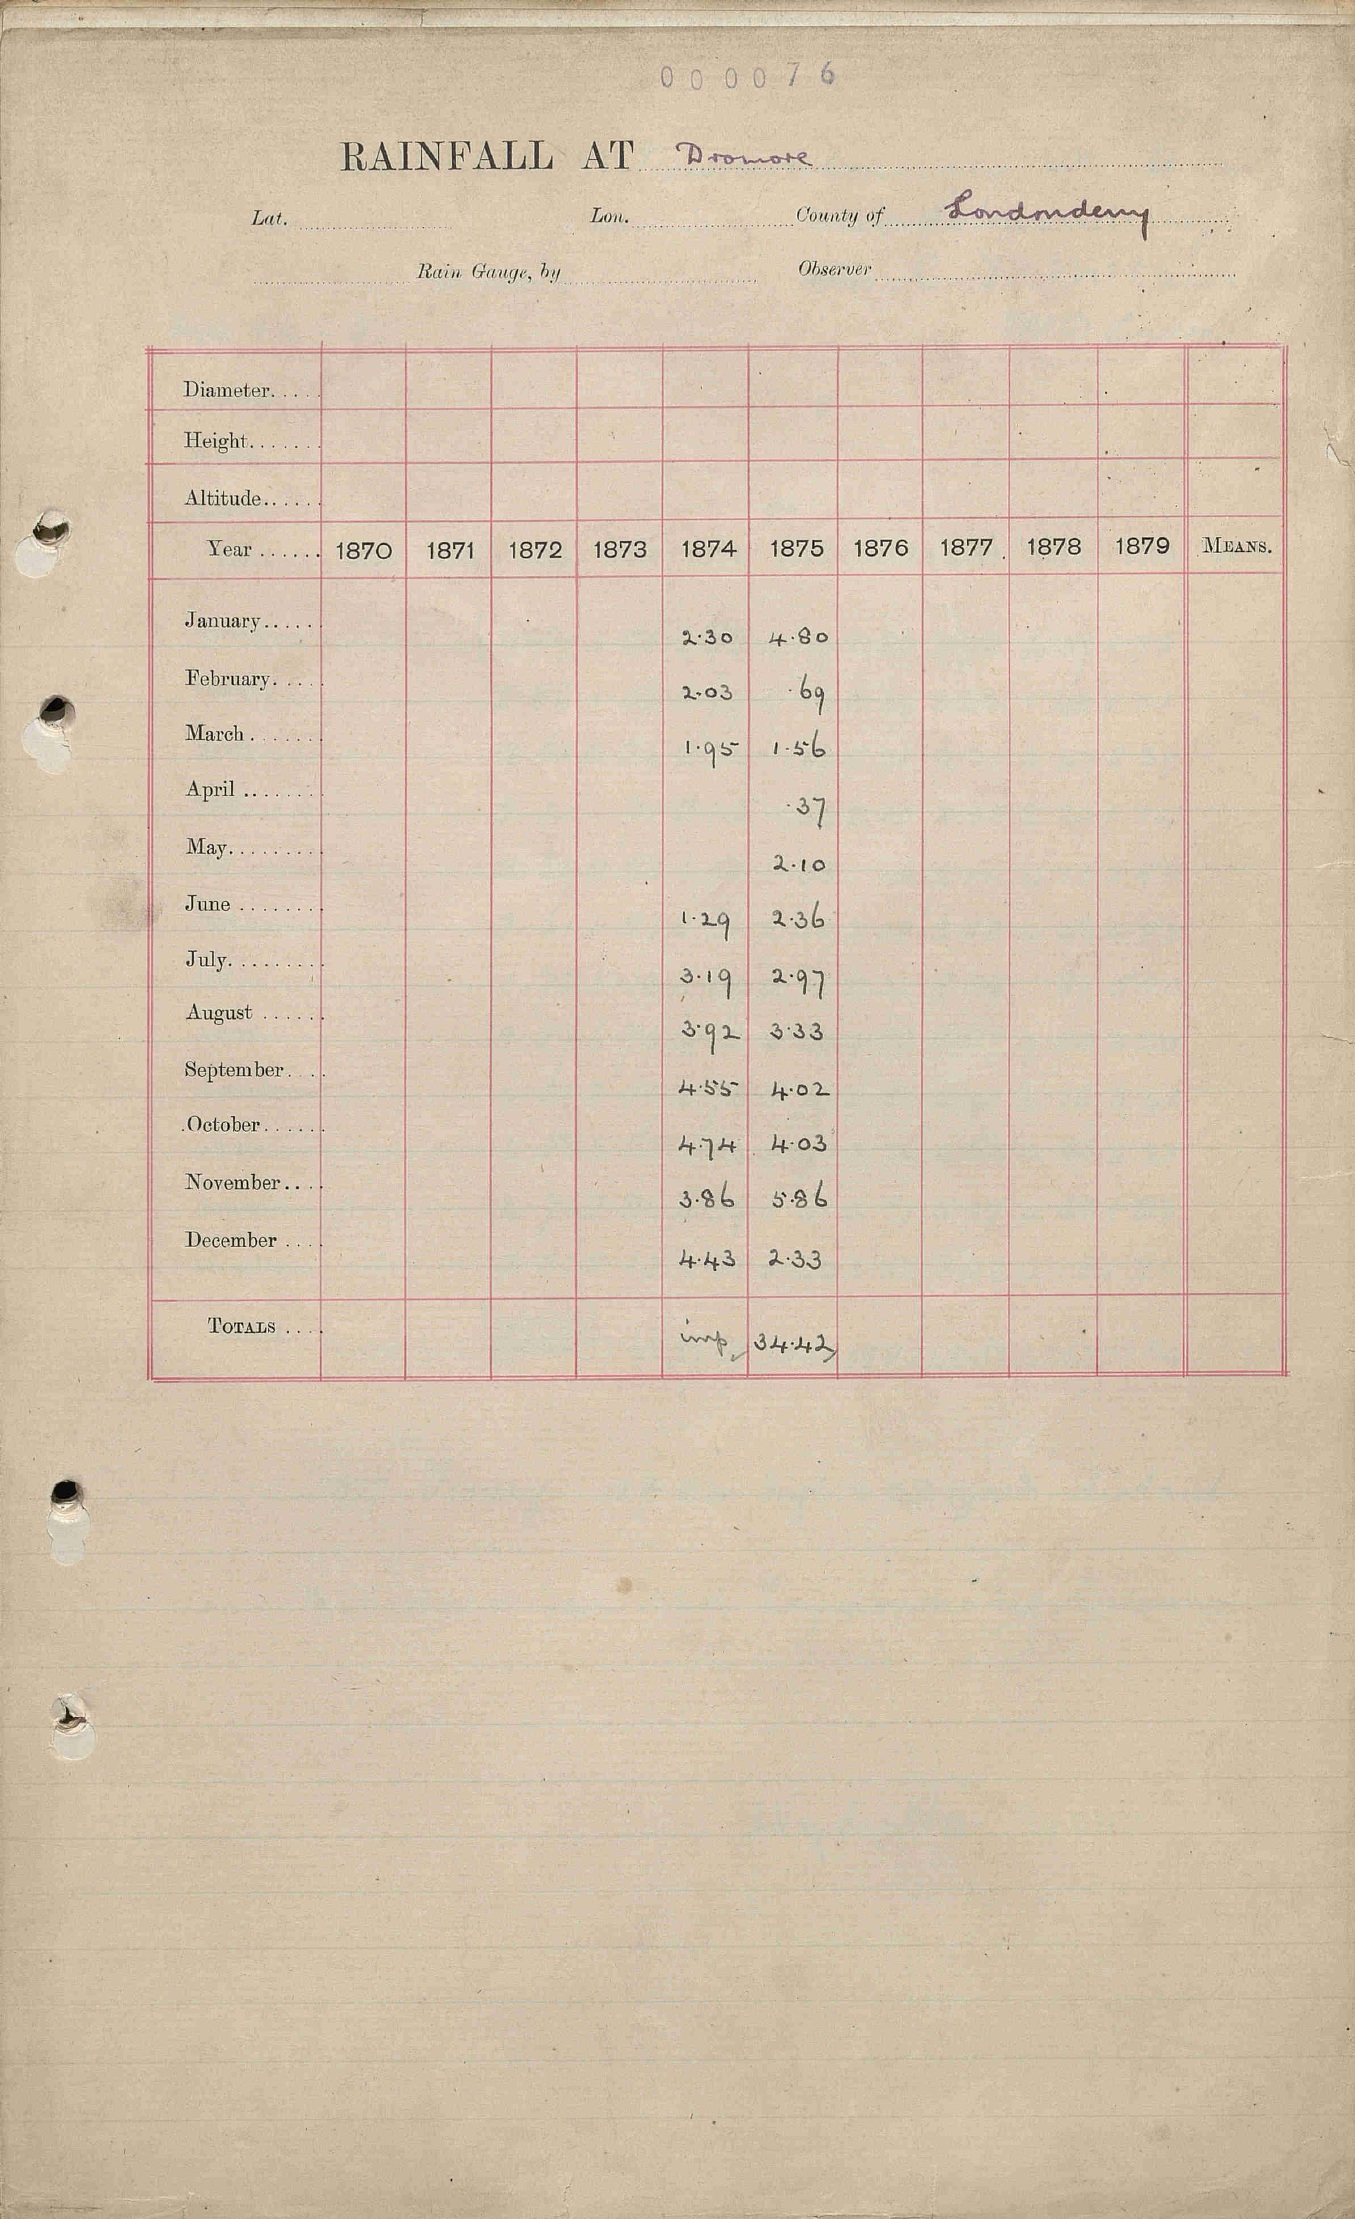 000076
RAINFALL AT Dromore
Lat. Lon. County of Londonderry
Rain Gauge, by Observer
Diameter.....
Height.......
Altitude......
Year ...... 1870 1871 1872 1873 1874 1875 1876 1877 1878 1879 MEANS.
January..... 2.30 4.80
February..... 2.03 .69
March....... 1.95 1.56
April ....... .37
May......... 2.10
June ........ 1.29 2.36
July......... 3.19 2.97
August ...... 3.92 3.33
September.... 4.55 4.02
October...... 4.74 4.03
November.... 3.86 5.86
December .... 4.43 2.33
TOTALS .... imp 34.42